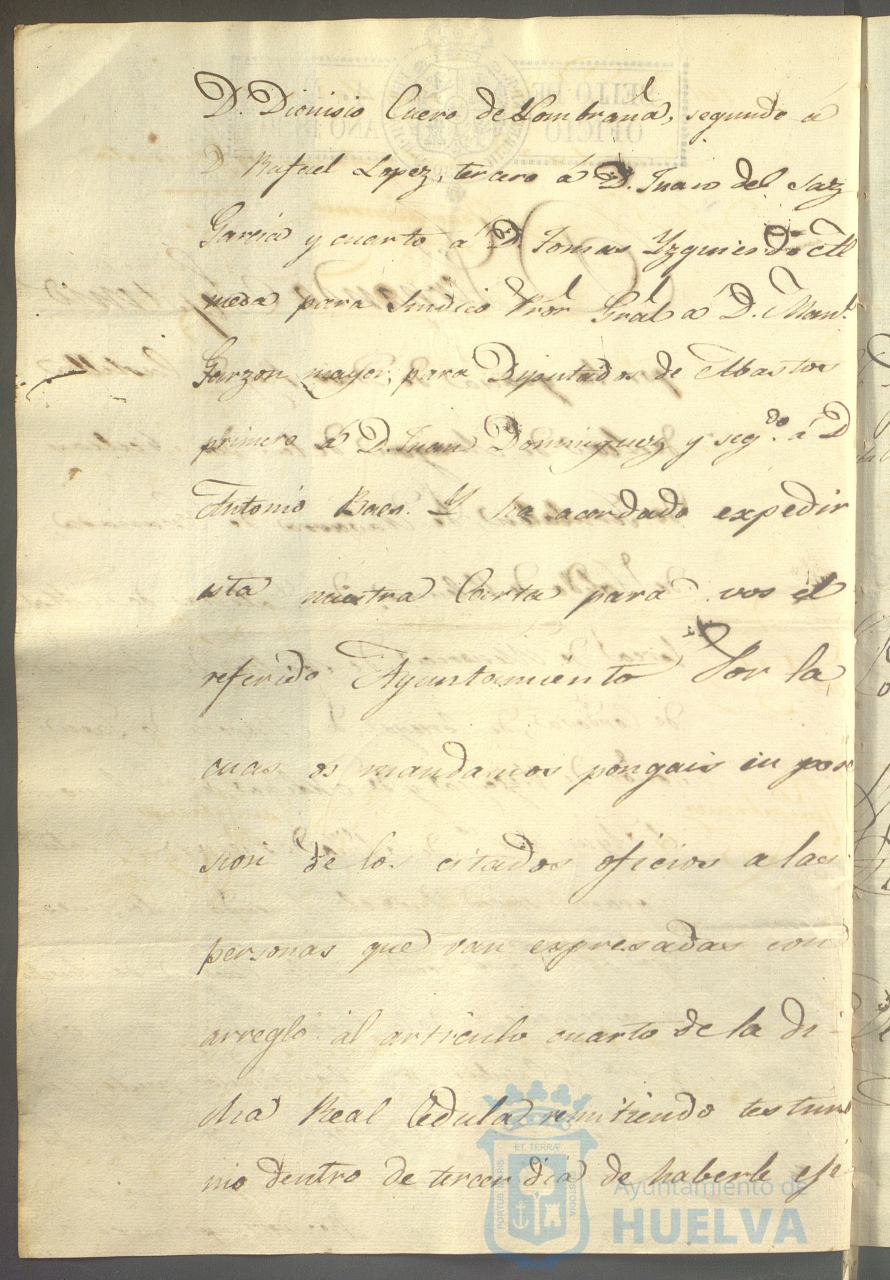 D. Dionisio Cuero de Lombrana, segundo á
D Rafael Lopez, tercero á D. Juan del Saz
Garcia y cuarto á D. Tomas Yzquierdo Al
meda para Sindico Pror Gral á D. Manl.
Garzon mayor, para Diputados de Abastos
primero á D. Juan Dominguez y segdo. á D
Antonio Baes. Y ha acordado expedir
esta nuestra Carta para vos el
referido Ayuntamiento Por la
cual os mandamos pongais en pose
sion de los citados oficios a las
personas que van expresadas con
arreglo al articulo cuarto de la di-
cha Real Cedula remitiendo testimo
nio dentro de tercer dia de haberle efe
Ayuntamiento de
HUELVA
ET TERRÆ
PORTUS MARIS
CUSTODIA